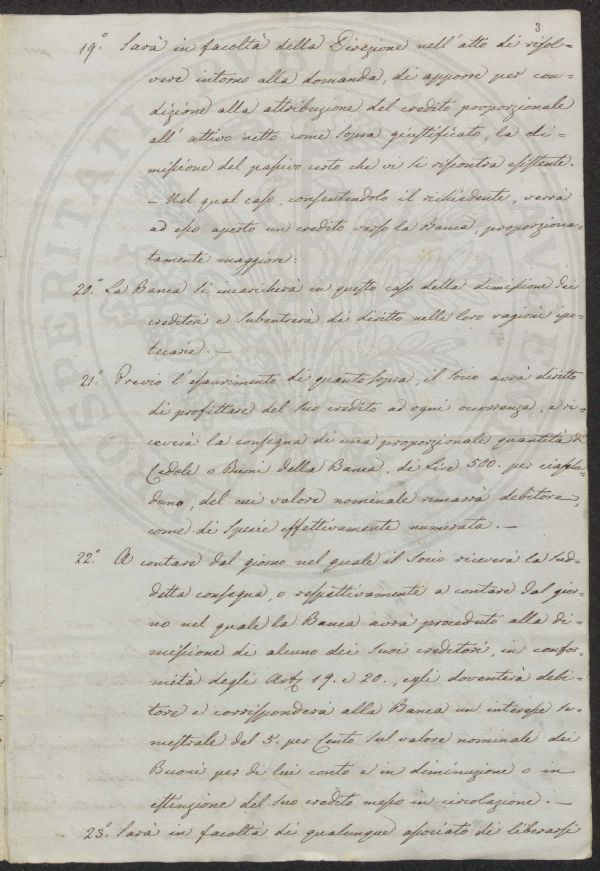 3
19.° Sarà in facoltà della Direzione nell'atto di risol-
vere intorno alla domanda, di apporre per con-
dizione alla attribuzione del credito proporzionale
all'attivo netto come sopra giustificato, la di-
missione del passivo certo che vi si riscontra esistente.
– Nel qual caso, consentendolo il richiedente, verrà
ad esso aperto un credito verso la Banca, proporziona-
tamente maggiore:
20.° La Banca si incaricherà in questo caso della dimissione dei
creditori e subentrerà di diritto nelle loro ragioni ipo-
tecarie. –
21.° Previo l'esaurimento di quanto sopra, il Socio avrà diritto
di profittare del suo credito ad ogni occorrenza, e ri-
ceverà la consegna di una proporzionale quantità di
Cedole o Buoni della Banca, di Lire 500. per ciasche-
duno, del cui valore nominale rimarrà debitore,
come di specie effettivamente numerata. –
22.° A contare dal giorno nel quale il Socio riceverà la sud-
detta consegna, o respettivamente a contare dal gior-
no nel quale la Banca avrà proceduto alla di-
missione di alcuno dei suoi creditori, in confor-
mità degli Art. 19. e 20., egli doventerà debi-
tore e corrisponderà alla Banca un interesse se-
mestrale del 5. per Cento sul valore nominale dei
Buoni per di lui conto e in diminuzione o in
estinzione del suo credito messo in circolazione. –
23.° Sarà in facoltà di qualunque associato di liberarsi
PROSPERITATI PUBLICAE